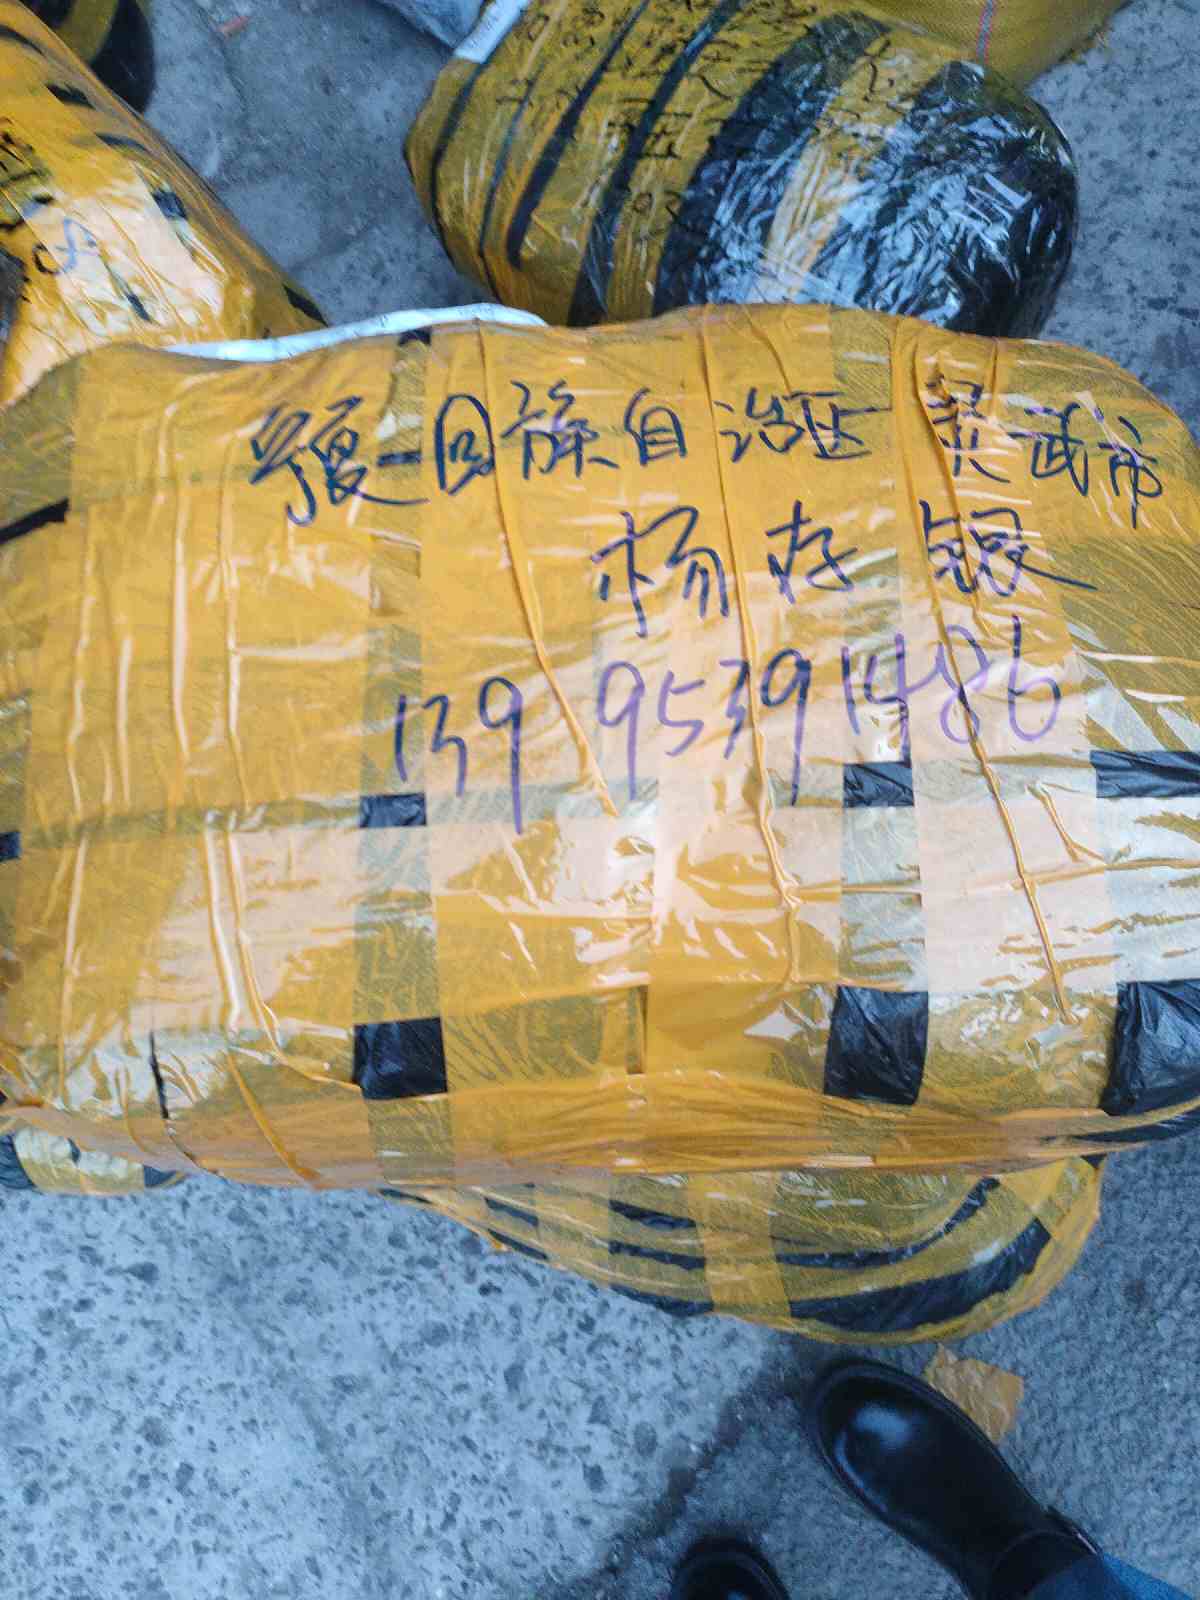 宁夏回族自治区 灵武市
杨存银
139 95391486